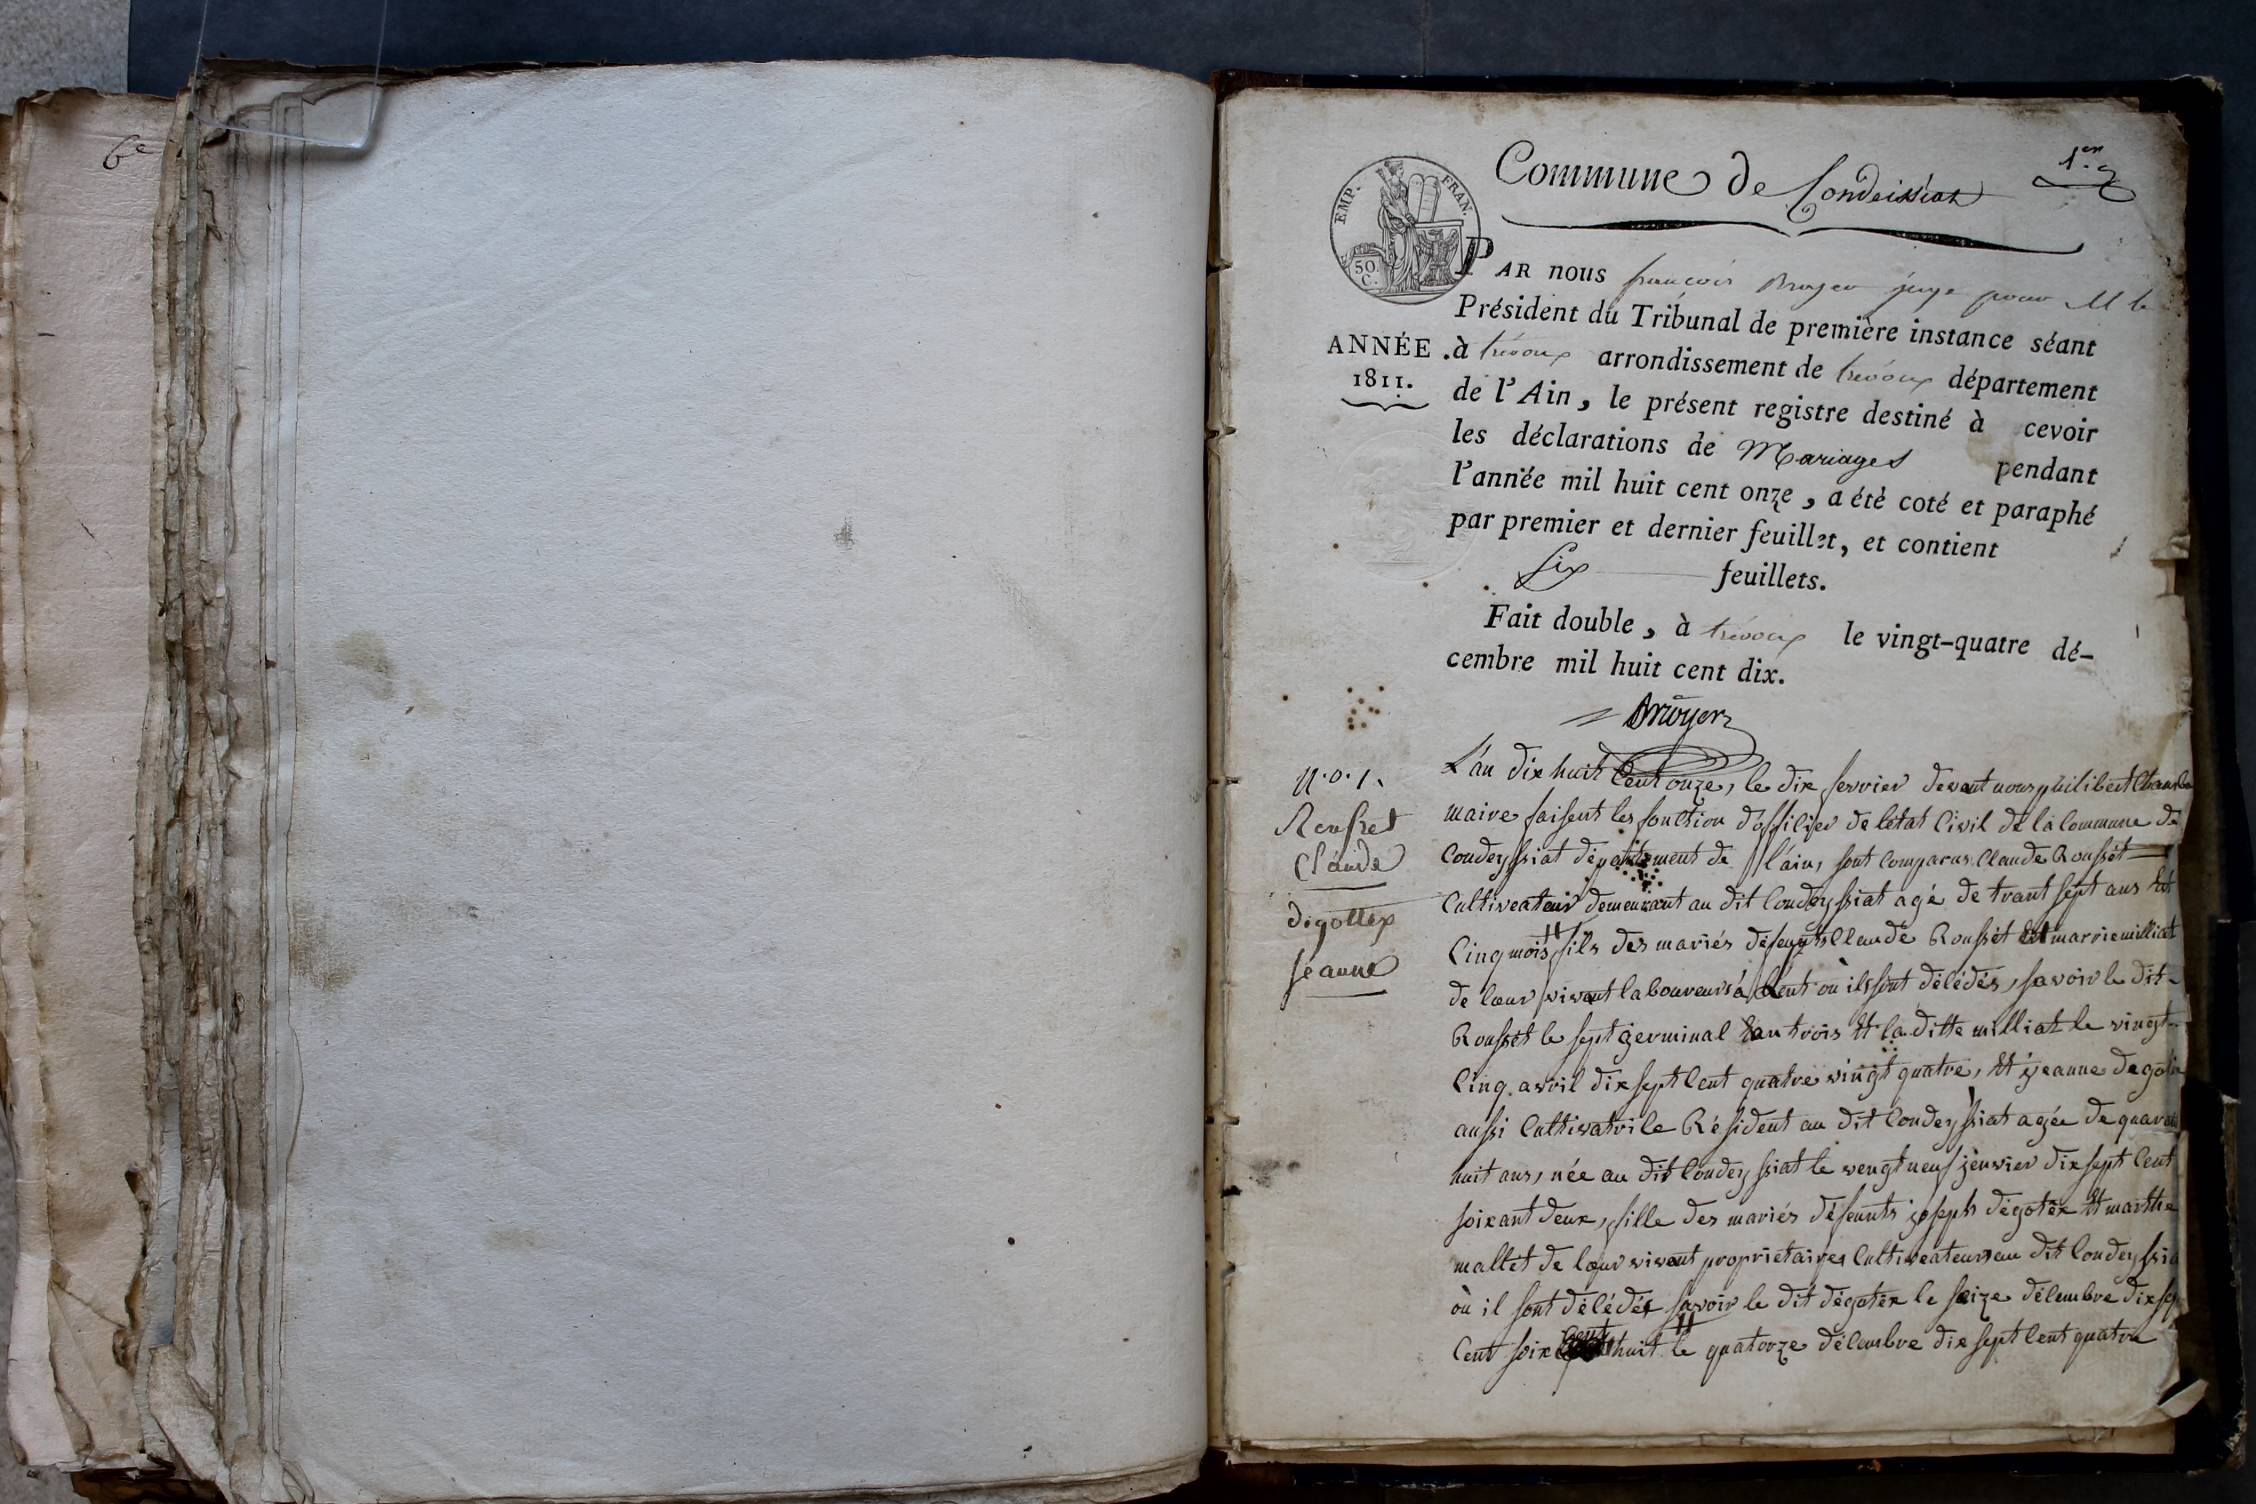 6e
1er
Commune de Condeissiat
EMP. FRAN.
50. C.
PAR nous françois Bruyer juge pour M le
Président du Tribunal de première instance séant
ANNÉE
1811.
à trévoux arrondissement de trévoux département
de l'Ain, le présent registre destiné à cevoir
les déclarations de Mariages pendant
l'année mil huit cent onze, a été coté et paraphé
par premier et dernier feuillet, et contient
Six feuillets.
Fait double, à trévoux le vingt-quatre dé-
cembre mil huit cent dix.
Bruyer
N.o.1.
Rousset
Claude
digottex
jeanne
L'an dix huit Cent onze, le dix fevrier devent nous philibert
maire faisent les fonction d'officier de létat Civil de la Commune de
Condeyssiat département de l'ain, sont Comparus Claude Rousset
Cultiveateur demeurant au dit Condeyssiat agé de trant sept ans Et
Cinq mois fils des mariés défeunts Claude Rousset Et marrie milliat
de lœur vivent laboureurs à où ils sont décédés, savoir le dit
Rousset le sept germinal an trois Et la ditte milliat le vingt
Cinq avril dix sept Cent quatre vingt quatre, Et jeanne
aussi Cultivatrice Résident au dit Condeyssiat agée de quaran
huit ans, née au dit Condeyssiat le vengt neuf jenvier dix sept Cent
soixant deux, fille des mariés défeunts joseph dégotex Et marthe
mallet de lœur vivent proprietaires Cultiveateurs au dit Condeyssia
où il sont décédés savoir le dit dégotex le seize décembre dix sep
Cent soix huit le quatorze décembre dix sept Cent quatre